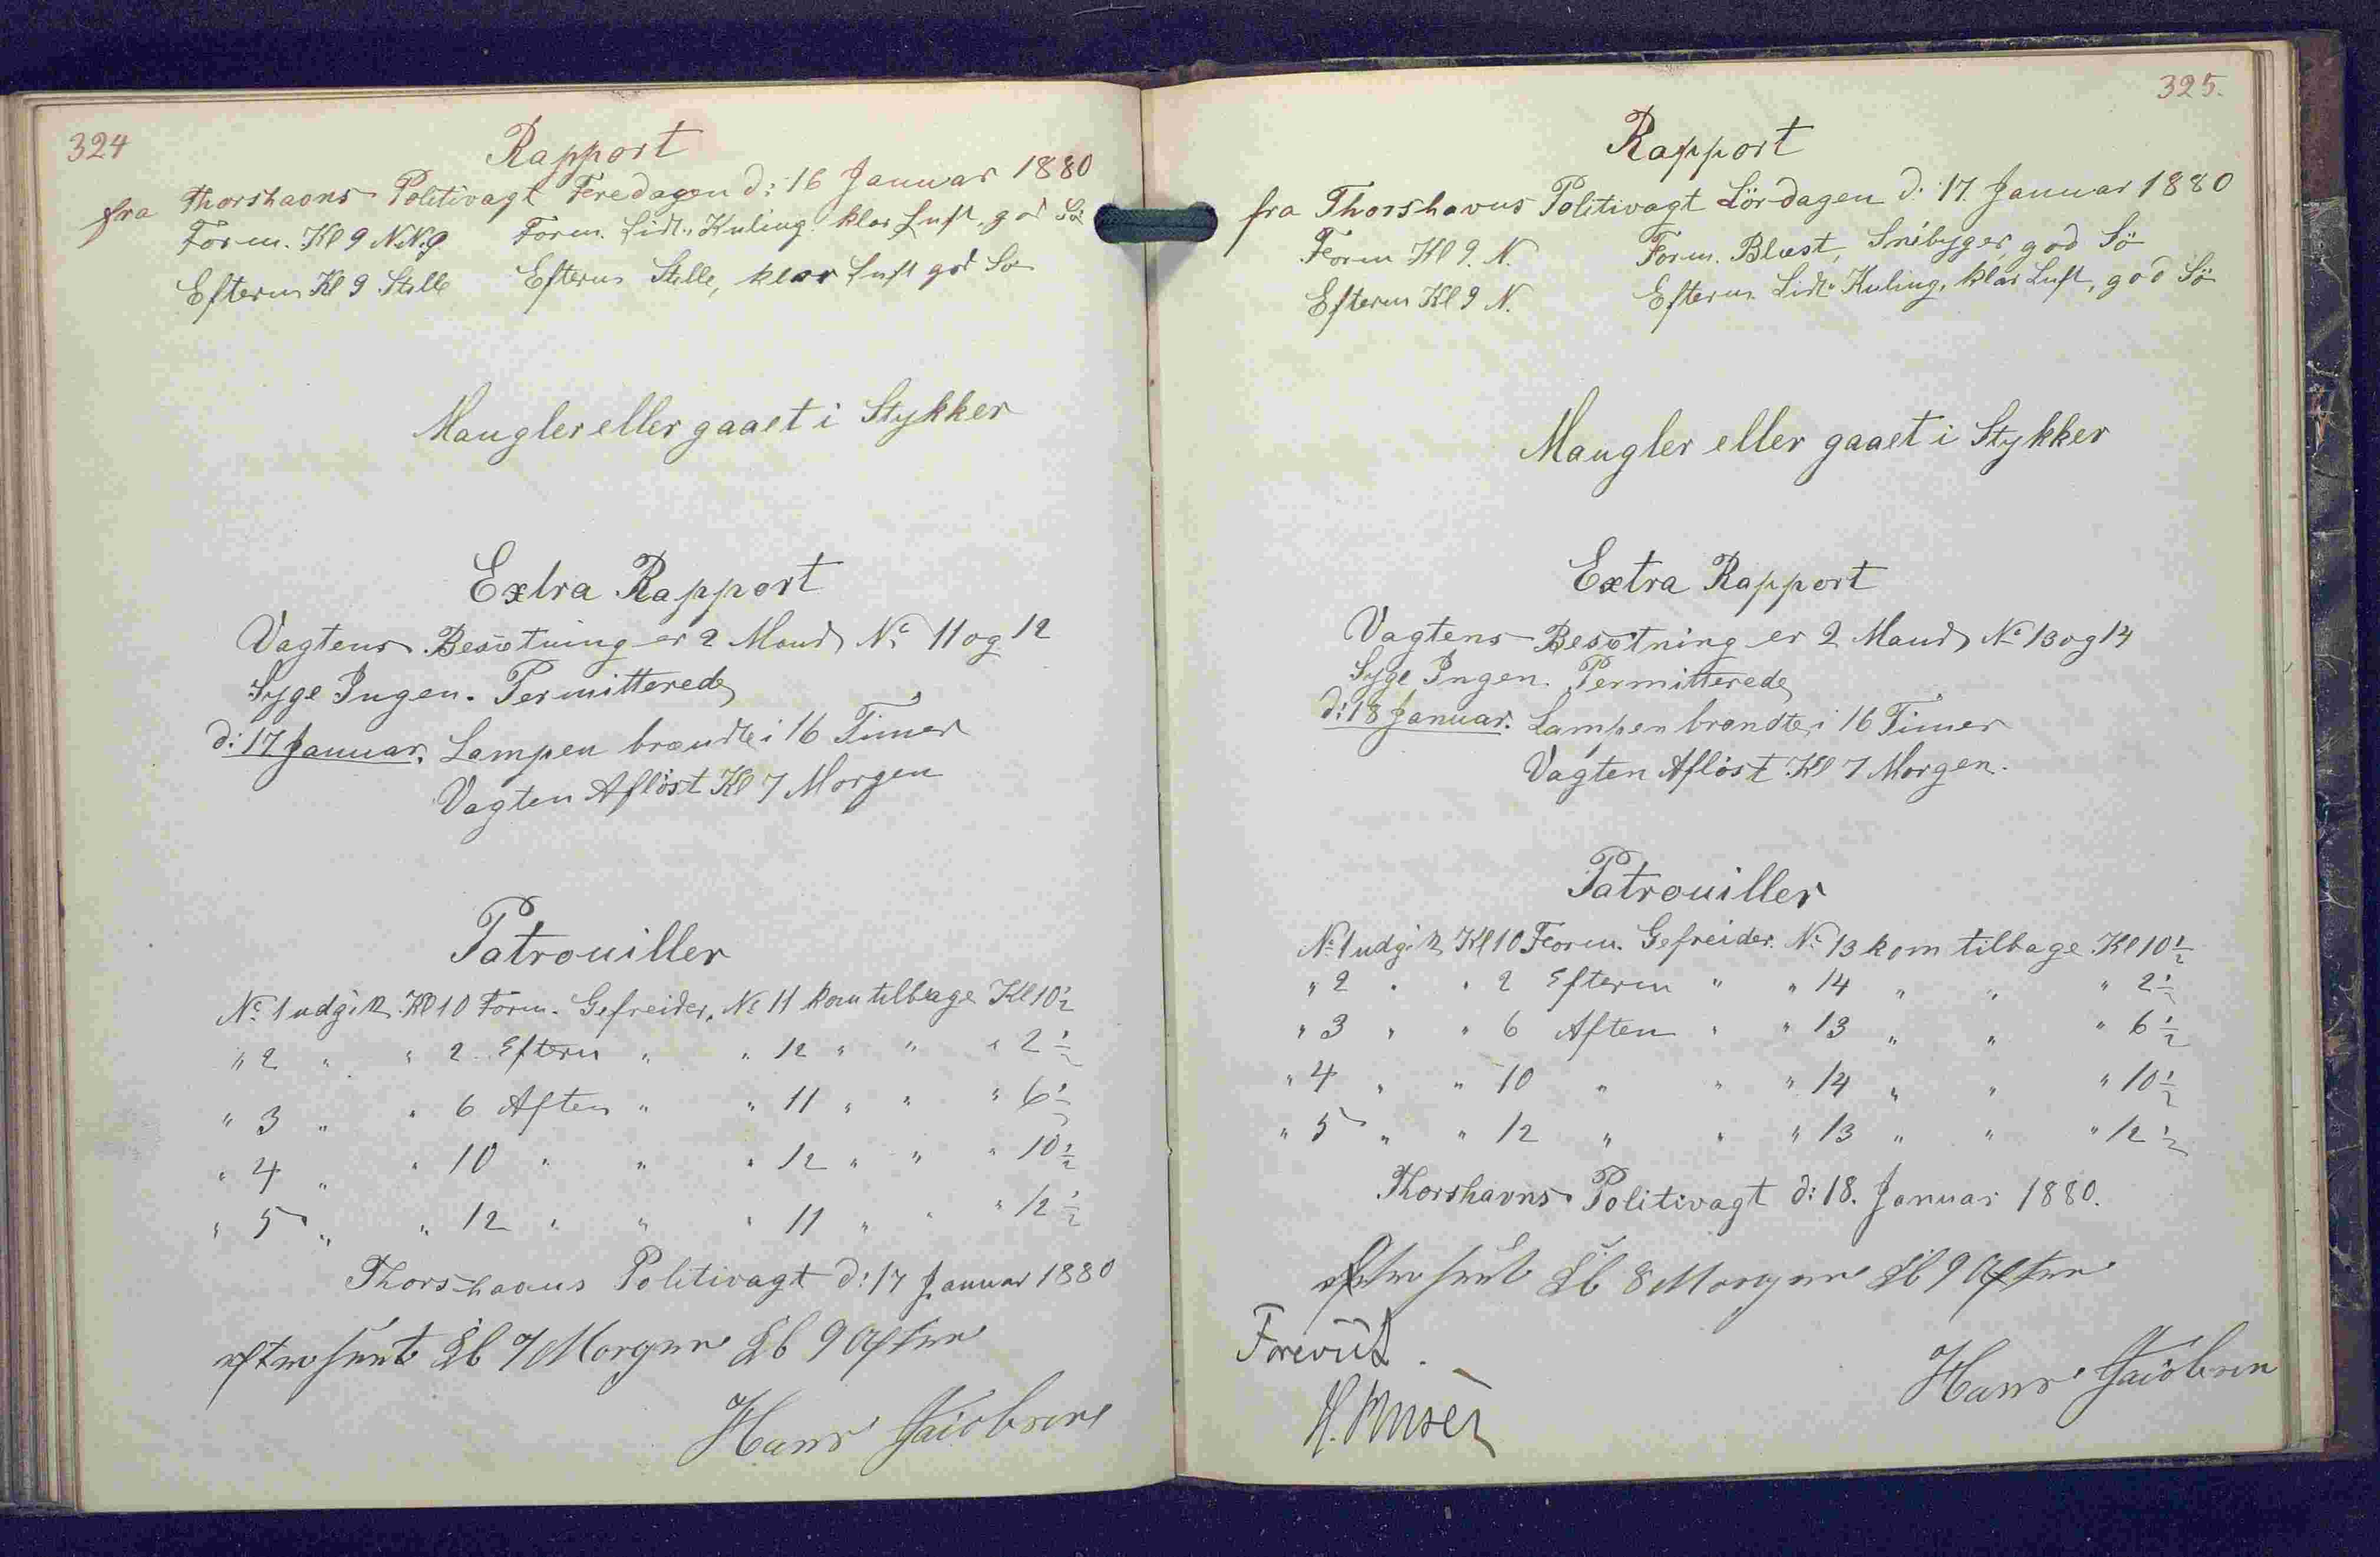 324
Rapport
fra Thorshavns Politivagt Feredagen d: 16 Januar 1880
Form. Kl 9 N.N.Ø. Form. Lidt Kuling, klar Luft, god Sö
Efterm Kl 9 Stille Efterm Stille, klar Luft god Sö
Mangler eller gaaet i Stykker
Extra Rapport
Vagtens Besætning er 2 Mand No 11 og 12
Syge Ingen. Permitterede
d: 17 Januar. Lampen brændte i 16 Timer
Vagten Aflöst Kl 7 Morgen
Patrouiller
No 1 udgik Kl 10 Form. Gefreider, No 11 kom tilbage Kl 10½
" 2 " " 2 Efterm " " 12 " " " 2½
" 3 " " 6 Aften " " 11 " " " 6½
" 4 " " 10 " " " 12 " " " 10½
" 5 " " 12 " " " 11 " " " 12½
Thorshavns Politivagt d: 17 Januar 1880
efterseet Kl 7 Morgen Kl 9 Aften
Hans Jacobsen
325.
Rapport
fra Thorshavns Politivagt Lördagen d: 17. Januar 1880
Form Kl 9. N. Form. Blæst, Snebyger, god Sö
Efterm Kl 9 N. Efterm. Lidt Kuling, klar Luft, god Sö
Mangler eller gaaet i Stykker
Extra Rapport
Vagtens Besætning er 2 Mand No 13 og 14
Syge Ingen. Permitterede
d: 18 Januar. Lampen brændte i 16 Timer
Vagten Aflöst Kl 7 Morgen.
Patrouiller
No 1 udgik Kl 10 Form. Gefreider. No 13 kom tilbage Kl 10½
" 2 " " 2 Efterm " " 14 " " " 2½
" 3 " " 6 Aften " " 13 " " " 6½
" 4 " " 10 " " " 14 " " " 10½
" 5 " " 12 " " " 13 " " " 12½
Thorshavns Politivagt d: 18. Januar 1880.
efterseet Kl 8 Morgen Kl 9 Aften
Forevist.
Hans Jacobsen